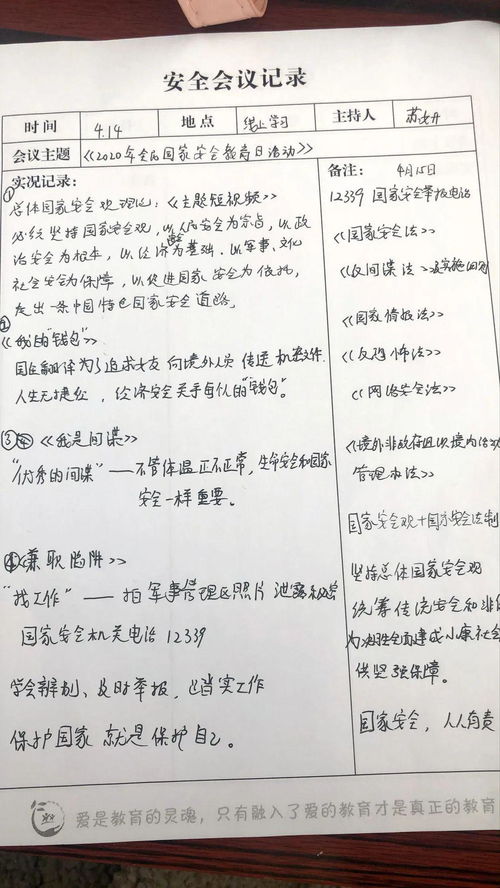 安全会议记录
时间 4.14 地点 线上学习 主持人
会议主题 《2020年全民国家安全教育日活动》
实况记录：
① 总体国家安全观理论：《主题短视频》
必须坚持国家安全观，以人民安全为宗旨，以政
治安全为根本，以经济安全为基础，以军事、文化
社会安全为保障，以促进国家安全为依托，
走出一条中国特色国家安全道路。
②
《我的"钱包"》
国企翻译为了追求女友 向境外人员 传送 机密文件
人生无捷径，经济安全关乎每个人的"钱包"。
③ 《我是间谍》
"优秀的间谍"——不管体温正不正常，生命安全和国家
安全一样重要。
④《兼职陷阱》
"找工作"——拍军事管理区照片 泄露
国家安全机关电话 12339
学会辨别、及时举报，踏实工作
保护国家 就是保护自己。
备注： 4月15日
12339 国家安全举报电话
《国家安全法》
《反间谍法》及实施细则
《国家情报法》
《反恐怖法》
《网络安全法》
《境外非政府组织境内活动
管理办法》
国家安全观+国家安全法制
坚持总体国家安全观
统筹传统安全和非传
为决胜全面建成小康社会
供坚强保障。
国家安全，人人有责
爱是教育的灵魂，只有融入了爱的教育才是真正的教育